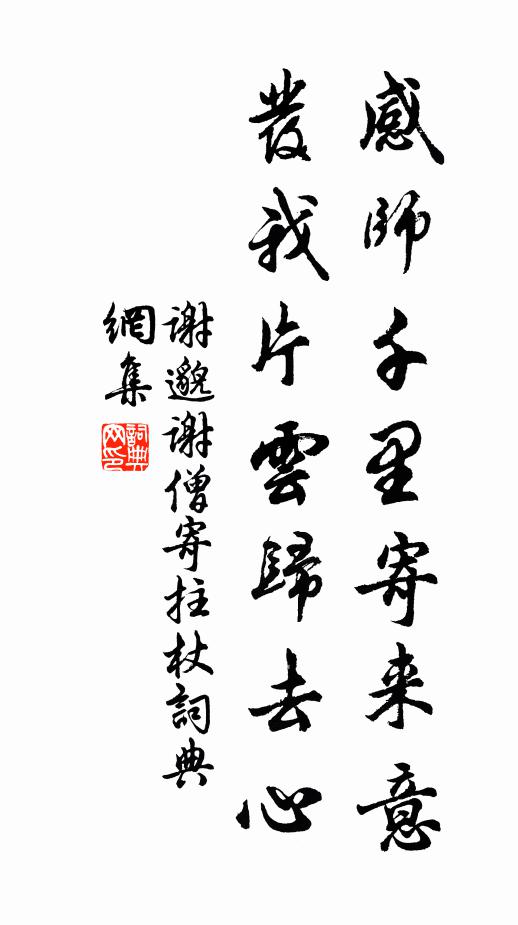 感師千里寄来意
發我片雲歸去心
謝邈謝僧寄拄杖詞典
網集
詞典网印